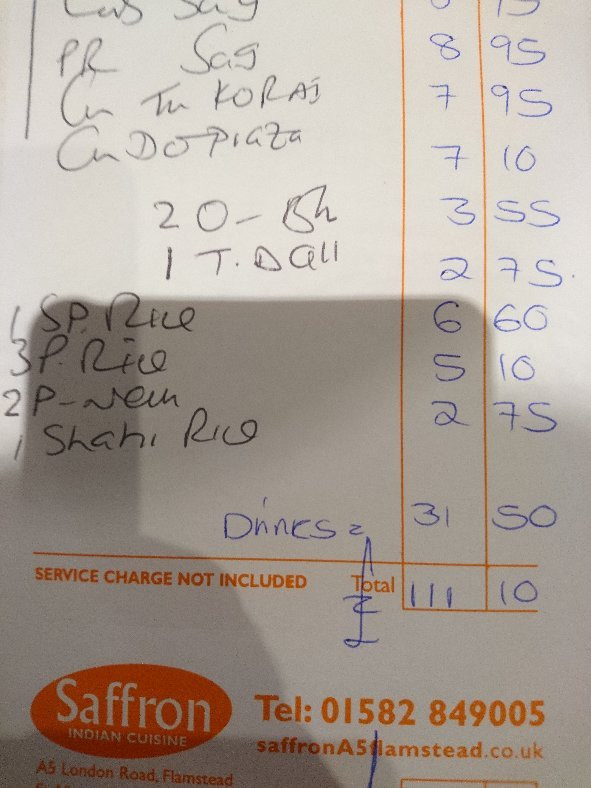 Sag
PR Sag 8 95
Cn Tn KORAI 7 95
Cn DO-Piaza 7 10
2 O-Bh 3 55
1 T. Dall 2 75.
1 SP. Rice 6 60
3 P. Rice 5 10
2 P-Nan 2 75
1 Shahi Rice
Drinks = 31 50
SERVICE CHARGE NOT INCLUDED Total £ 111 10
Saffron
INDIAN CUISINE
Tel: 01582 849005
saffronA5flamstead.co.uk
A5 London Road, Flamstead